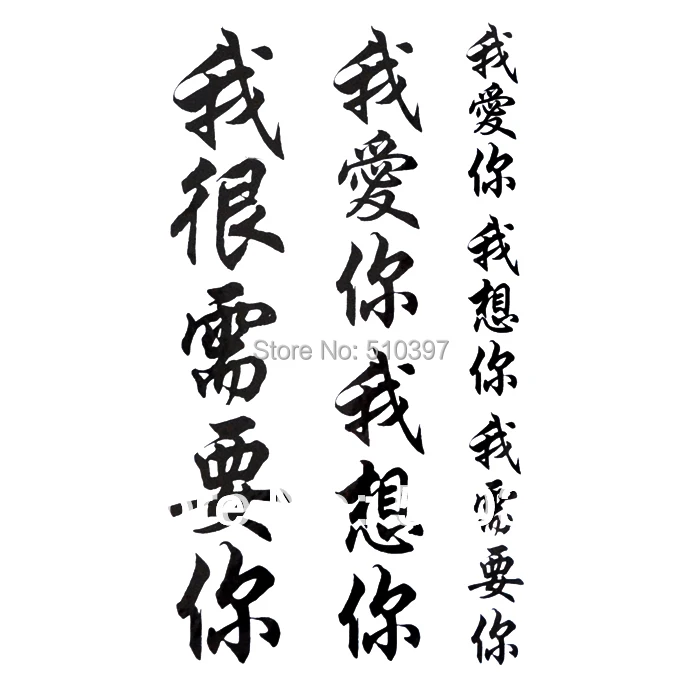 我很需要你
我愛你
我想你
我愛你
我想你
我需要你
Store No: 510397